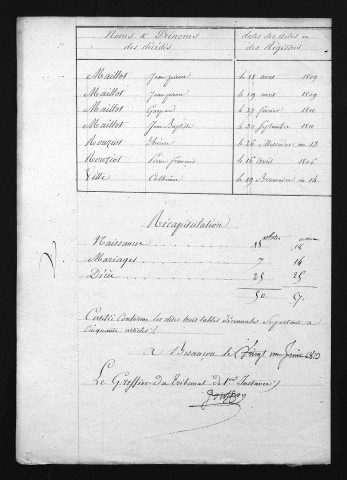 Noms & Prénoms des décédés
dates des actes ou des Registres
Maillot Jean pierre le 18 avril 1809
Maillot Jean pierre le 19 avril 1809
Maillot Gaspard le 27 février 1810
Maillot Jean Baptiste le 30 Septembre 1810
Rouziot le 26 Messidor an 13
Rouziot Pierre françois le 16 Avril 1806
Tille Catherine le 19 Brumaire an 14.
Récapitulation
Naissances 18 18
Mariages 7 14
Décès 25 25
50. 57.
Certifié Conforme les dites trois tables Décennales Se portant a
Cinquante articles
a Besançon le Vingt un Juin 1813
Le Greffier du Tribunal de 1ere Instance